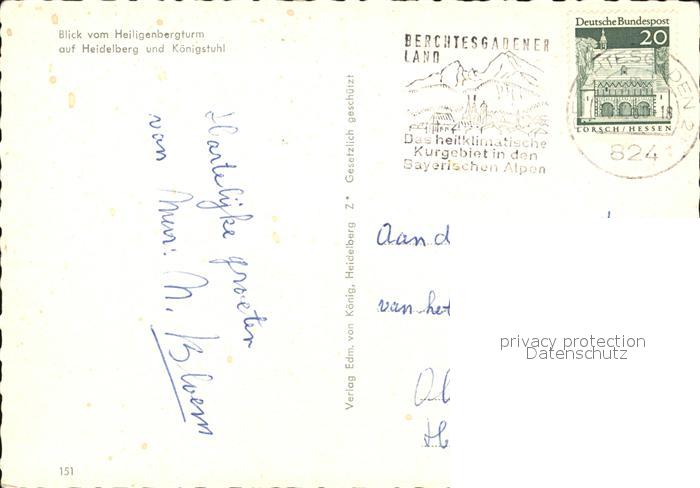 Blick vom Heiligenbergturm
auf Heidelberg und Königstuhl
BERCHTESGADENER
LAND
Das heilklimatische
Kurgebiet in den
Bayerischen Alpen
Deutsche Bundespost
20
LORSCH/HESSEN
824
Hartelijke groeten
van
Mevr. N. Bloem
Verlag Edm. von König, Heidelberg Z* Gesetzlich geschützt
Aan d
van het
privacy protection
Datenschutz
151